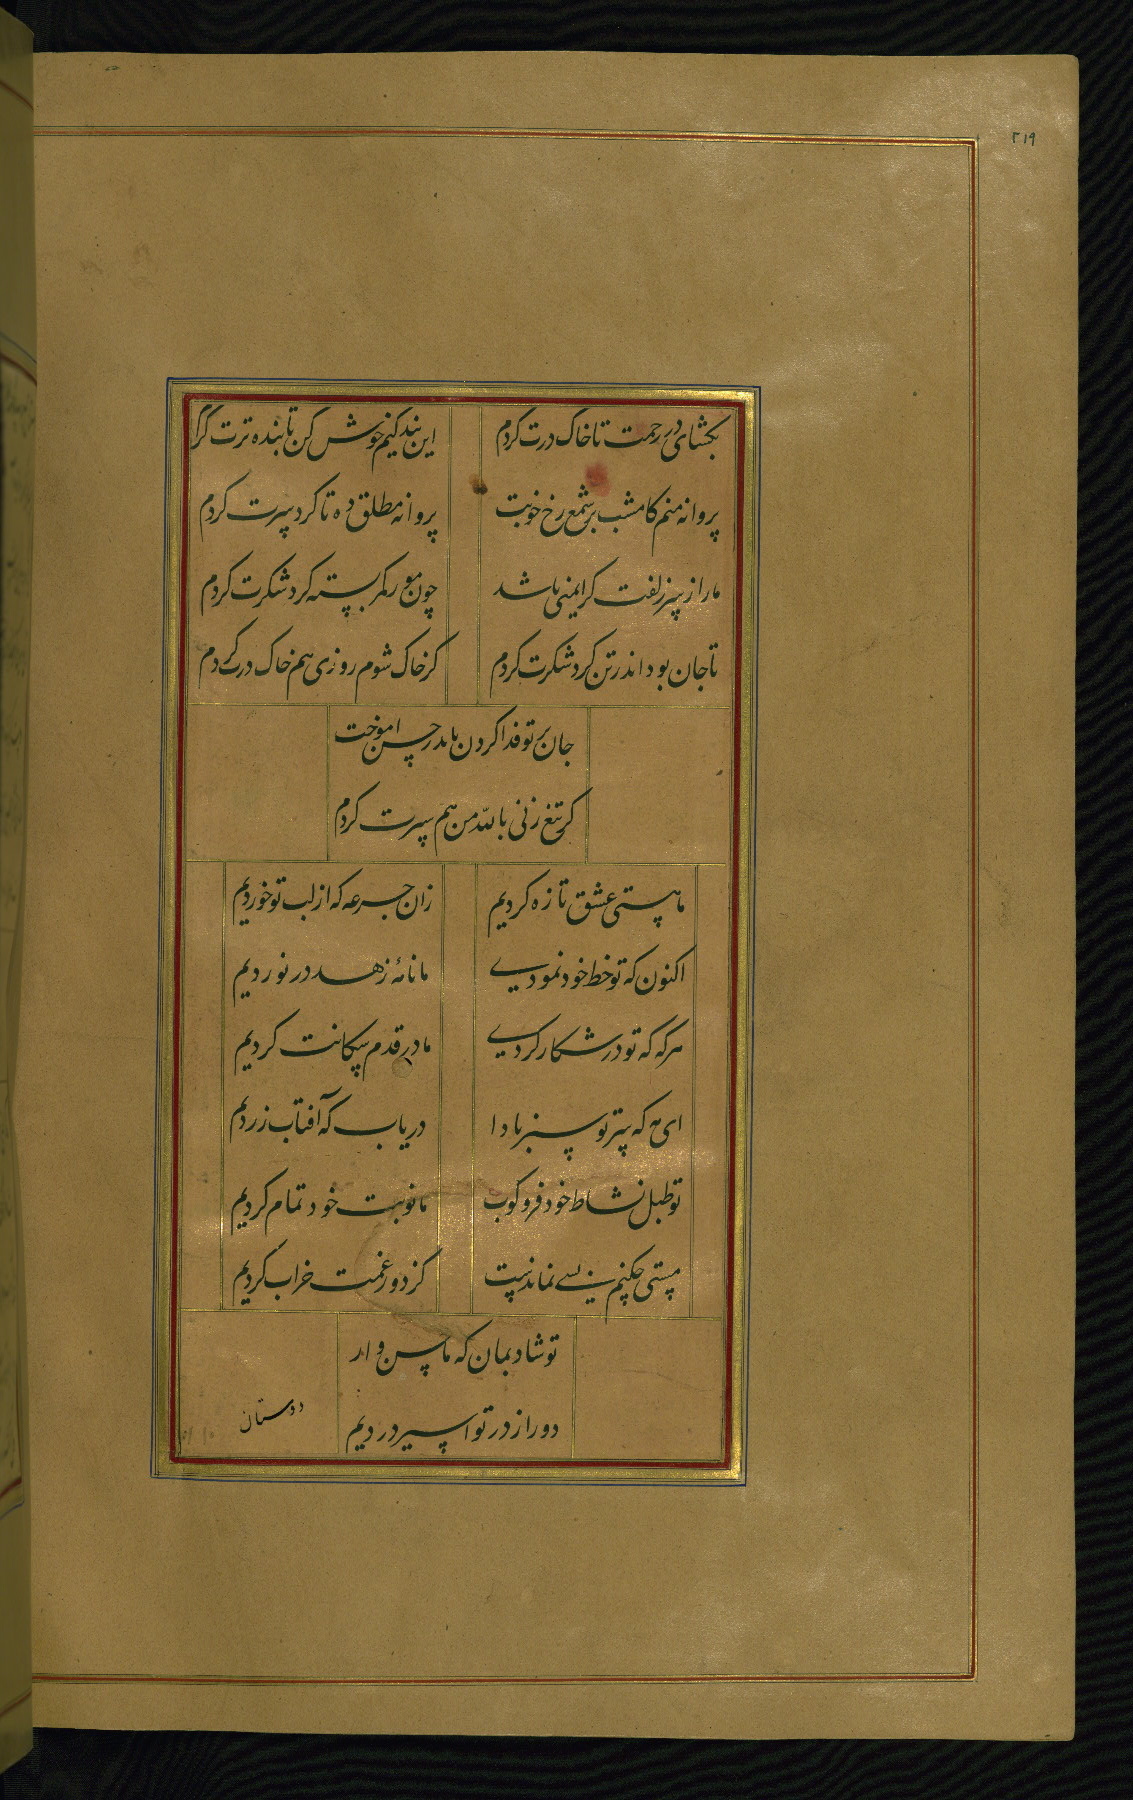 ۲۱۹
بگشای در رحمت تا خاک درت گردم
این بندگیم خوش کن تا بنده ترت گر
پروانه منم کامشب بر شمع رخ خوبت
پروانه مطلق ده تا گرد سرت گردم
مارا ز سر زلفت گر ایمنی باشد
چون مور کمر بسته گرد شکرت گردم
تا جان بود اندر تن گرد شکرت گردم
کز خاک شوم روزی هم خاک درت گردم
جان بر تو فدا کردن باید ز حسن اموخت
گر تیغ زنی بالله من هم سپرت گردم
ما مستی عشق تازه کردیم
زان جرعه که از لب تو خوردیم
اکنون که تو خط خود نمودی
ما نامهٔ زهد در نوردیم
هر گه که تو در شکار گردی
ما در قدم سگانت گردیم
ای که سر تو سبز بادا
دریاب که آفتاب زردیم
تو طبل نشاط خود فرو کوب
ما نوبت خود تمام کردیم
مستی چکنیم نماندست
کز دور غمت خراب گردیم
تو شاد بمان که ما حسن وار
دور از در تو اسیر دردیم
دوستان